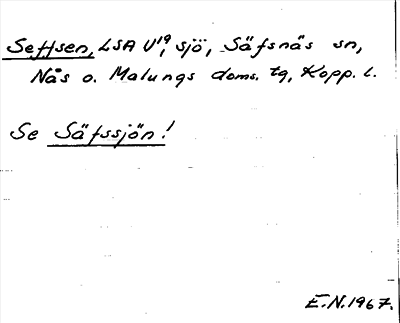 Seffsen, LSA U¹⁹, sjö, Säfsnäs sn,
Nås o. Malungs doms. tg, Kopp. l.
Se Säfssjön!
E.N. 1967.